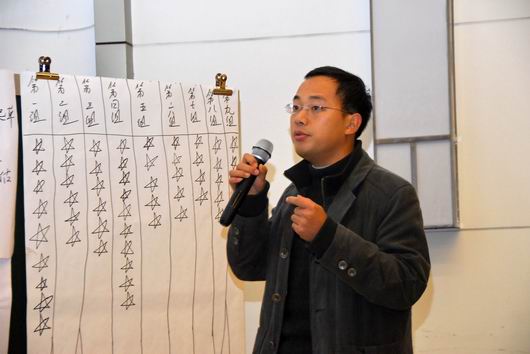 第一组
第二组
第三组
第四组
第五组
第六组
第七组
第八组
第九组